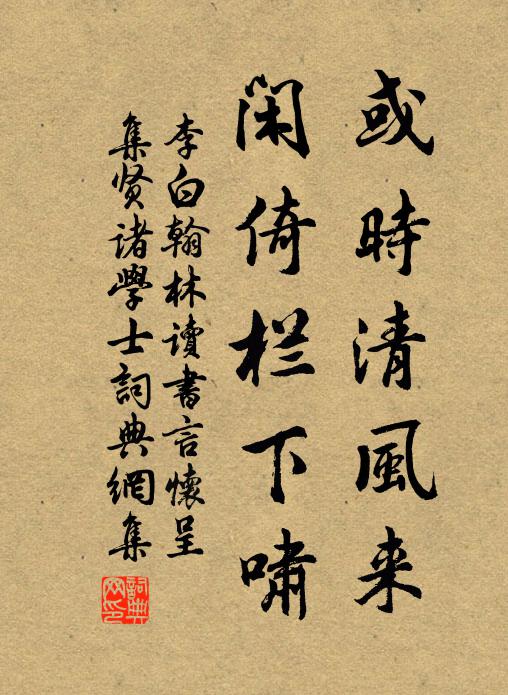 或時清風来
閑倚栏下嘯
李白翰林讀書言懷呈
集贤诸學士詞典網集
詞典网印